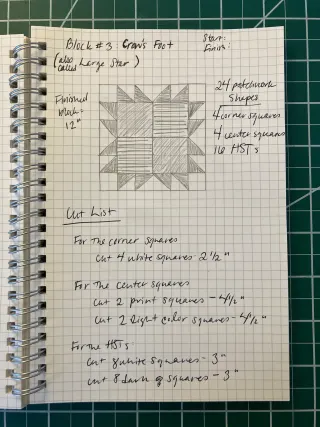 Block #3: Crow's Foot
Start:
Finish:
(also called Large Star)
Finished
block =
12"
24 patchwork
shapes
4 corner squares
4 center squares
16 HSTs
Cut List
For the corner squares
Cut 4 white squares - 2 1/2"
For the center squares
Cut 2 print squares - 4 1/2"
Cut 2 light color squares - 4 1/2"
For the HSTs
Cut 8 white squares - 3"
Cut 8 dark squares - 3"